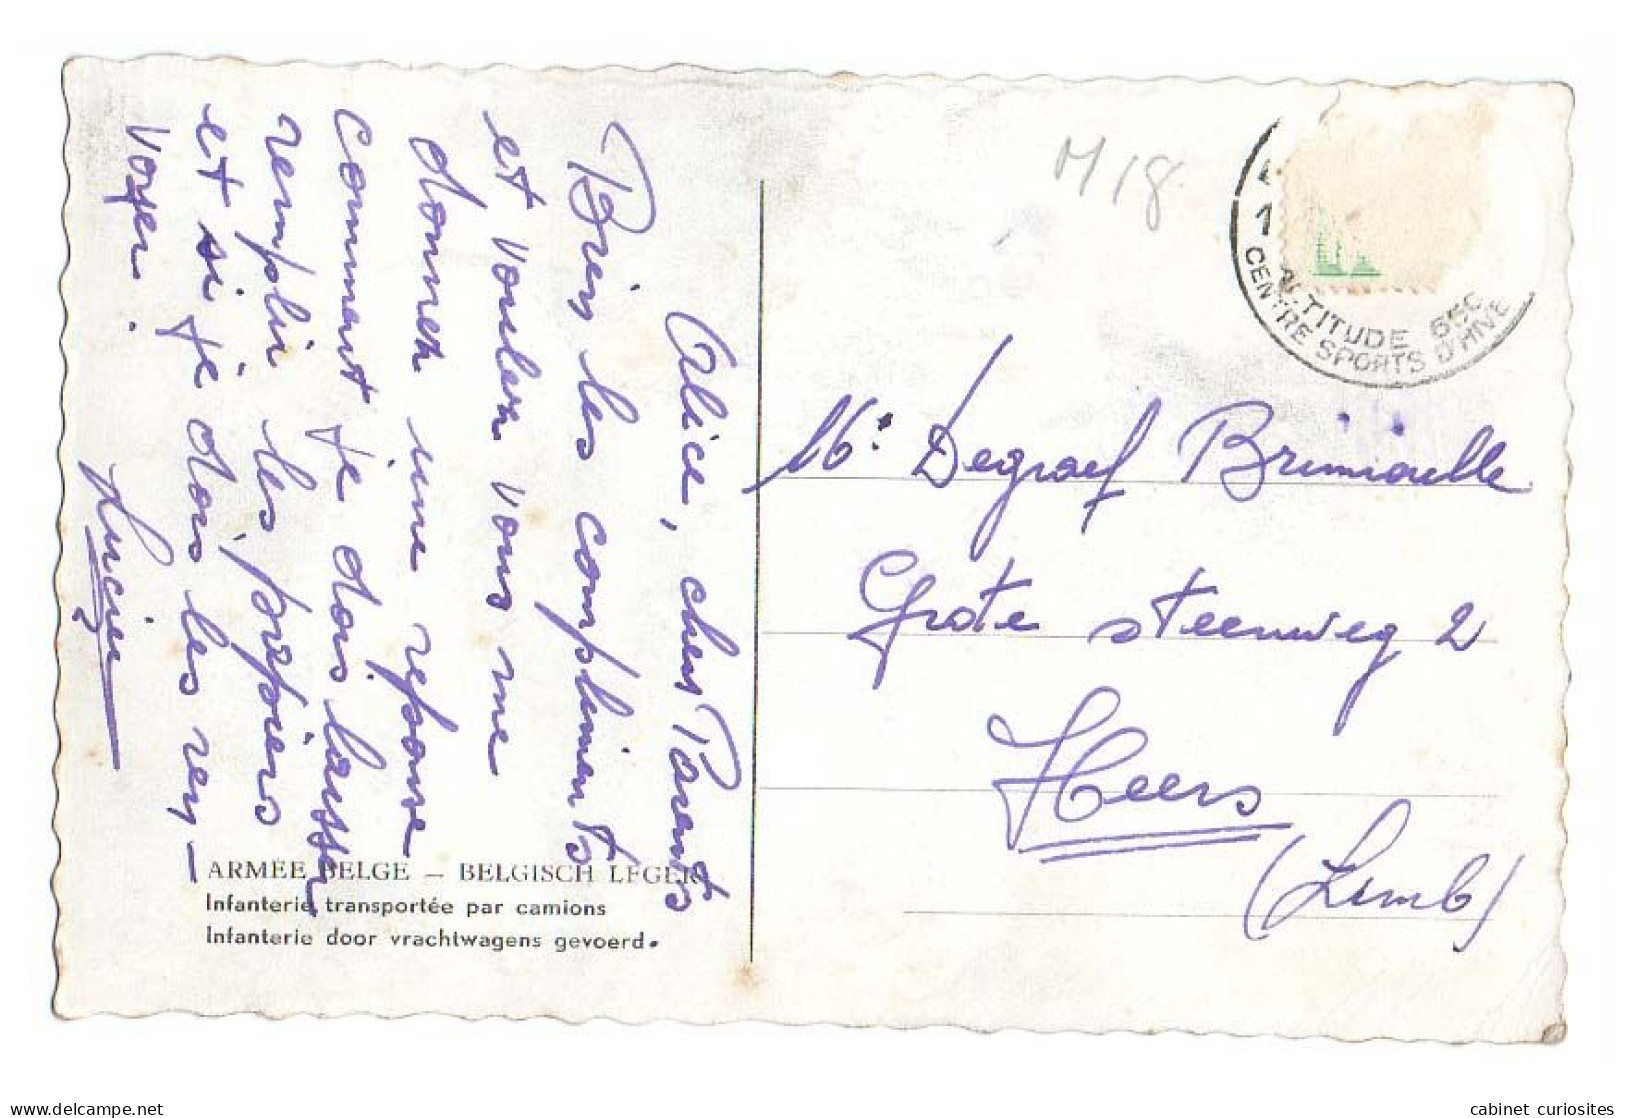 Alice, chers Parents
Bien les compliments
et voulez vous me
donner une reponse
comment je dois laisser
remplir les papiers
et si je dois les ren-
voyer.
Lucien
ARMÉE BELGE — BELGISCH LEGER
Infanterie transportée par camions
Infanterie door vrachtwagens gevoerd.
M18
1
ALTITUDE 650
CENTRE SPORTS D'HIVE
Degraef
Grote steenweg 2
Heers
(Limb)
cabinet curiosites
www.delcampe.net